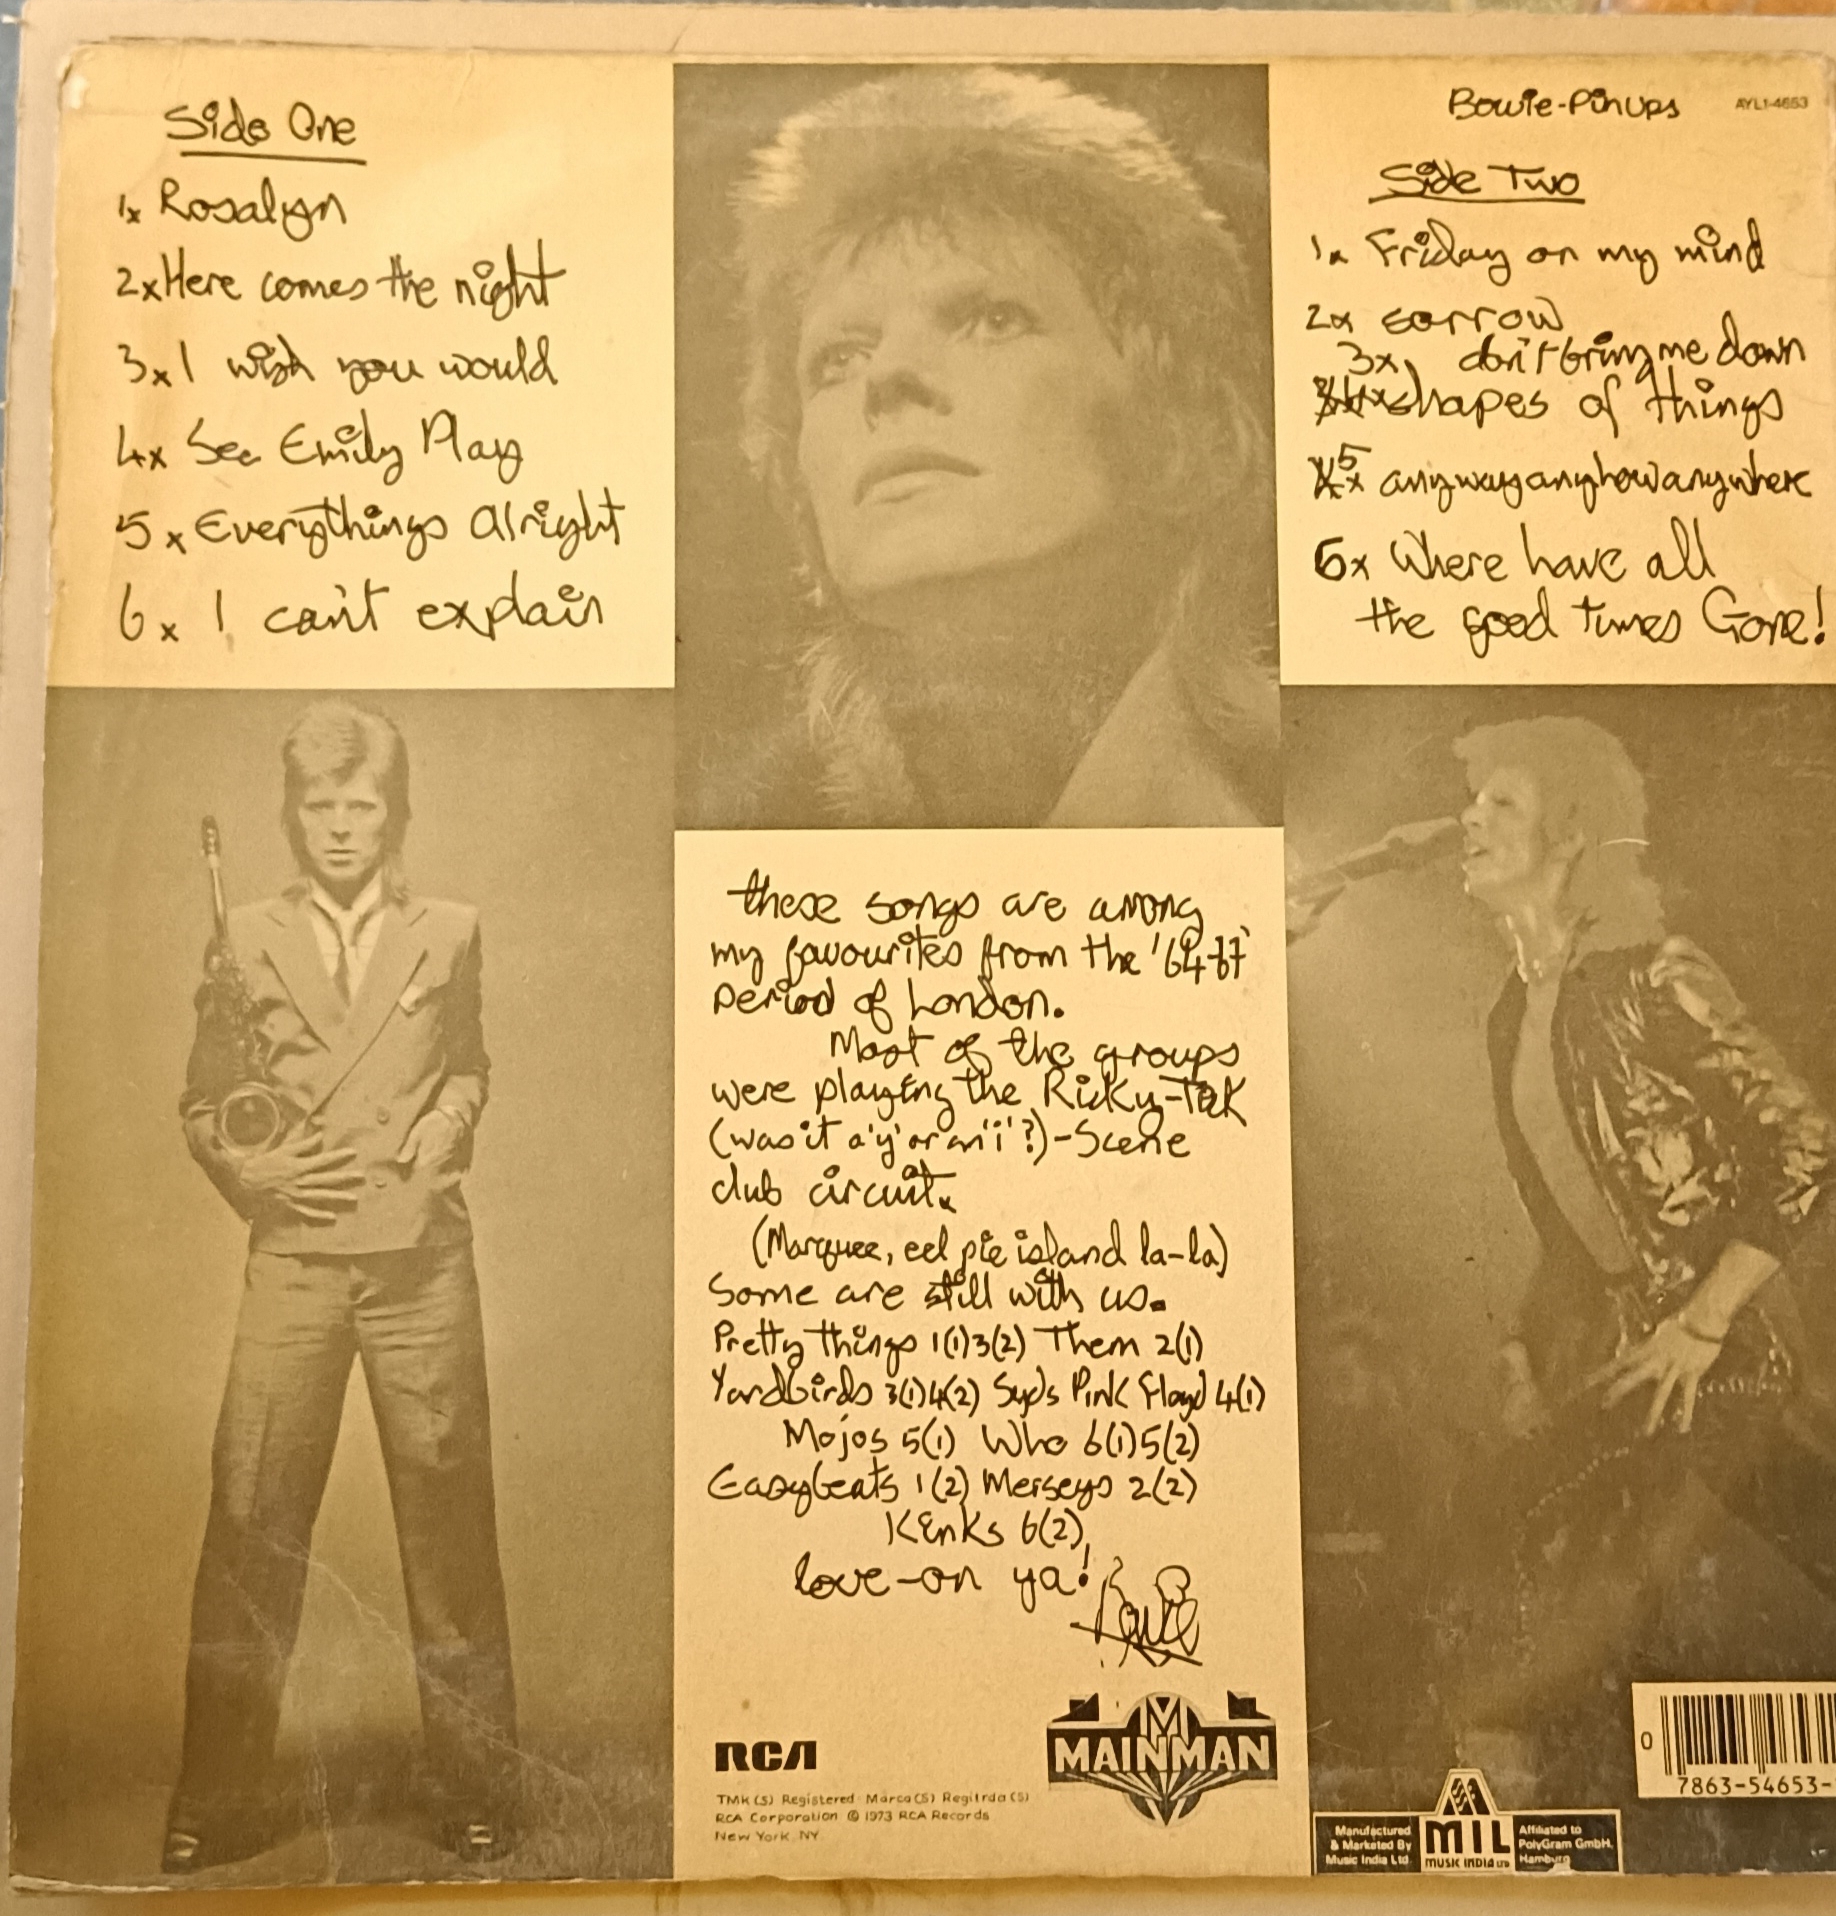 Side One
1x Rosalyn
2x Here comes the night
3x I wish you would
4x See Emily Play
5x Everythings Alright
6x I can't explain
Bowie-Pinups
AYL1-4653
Side Two
1x Friday on my mind
2x sorrow
3x don't bring me down
4x shapes of things
5x anywayanyhowanywhere
6x Where have all
the good times Gone!
these songs are among
my favourites from the '64-67'
period of London.
Most of the groups
were playing the Ricky-Tick
(was it a 'y' or an 'i'?)-Scene
club circuit.
(Marquee, eel pie island la-la)
Some are still with us.
Pretty things 1(1)3(2) Them 2(1)
Yardbirds 3(1)4(2) Syds Pink Floyd 4(1)
Mojos 5(1) Who 6(1)5(2)
Easybeats 1(2) Merseys 2(2)
Kinks 6(2)
love-on ya!
Bowie
RCA
TMK(S) Registered · Marca(S) Regitrda(S)
RCA Corporation © 1973 RCA Records
New York, NY.
M
MAINMAN
0
7863-54653-
Manufactured
& Marketed By
Music India Ltd.
MIL
MUSIC INDIA LTD
Affiliated to
PolyGram GmbH.
Hamburg